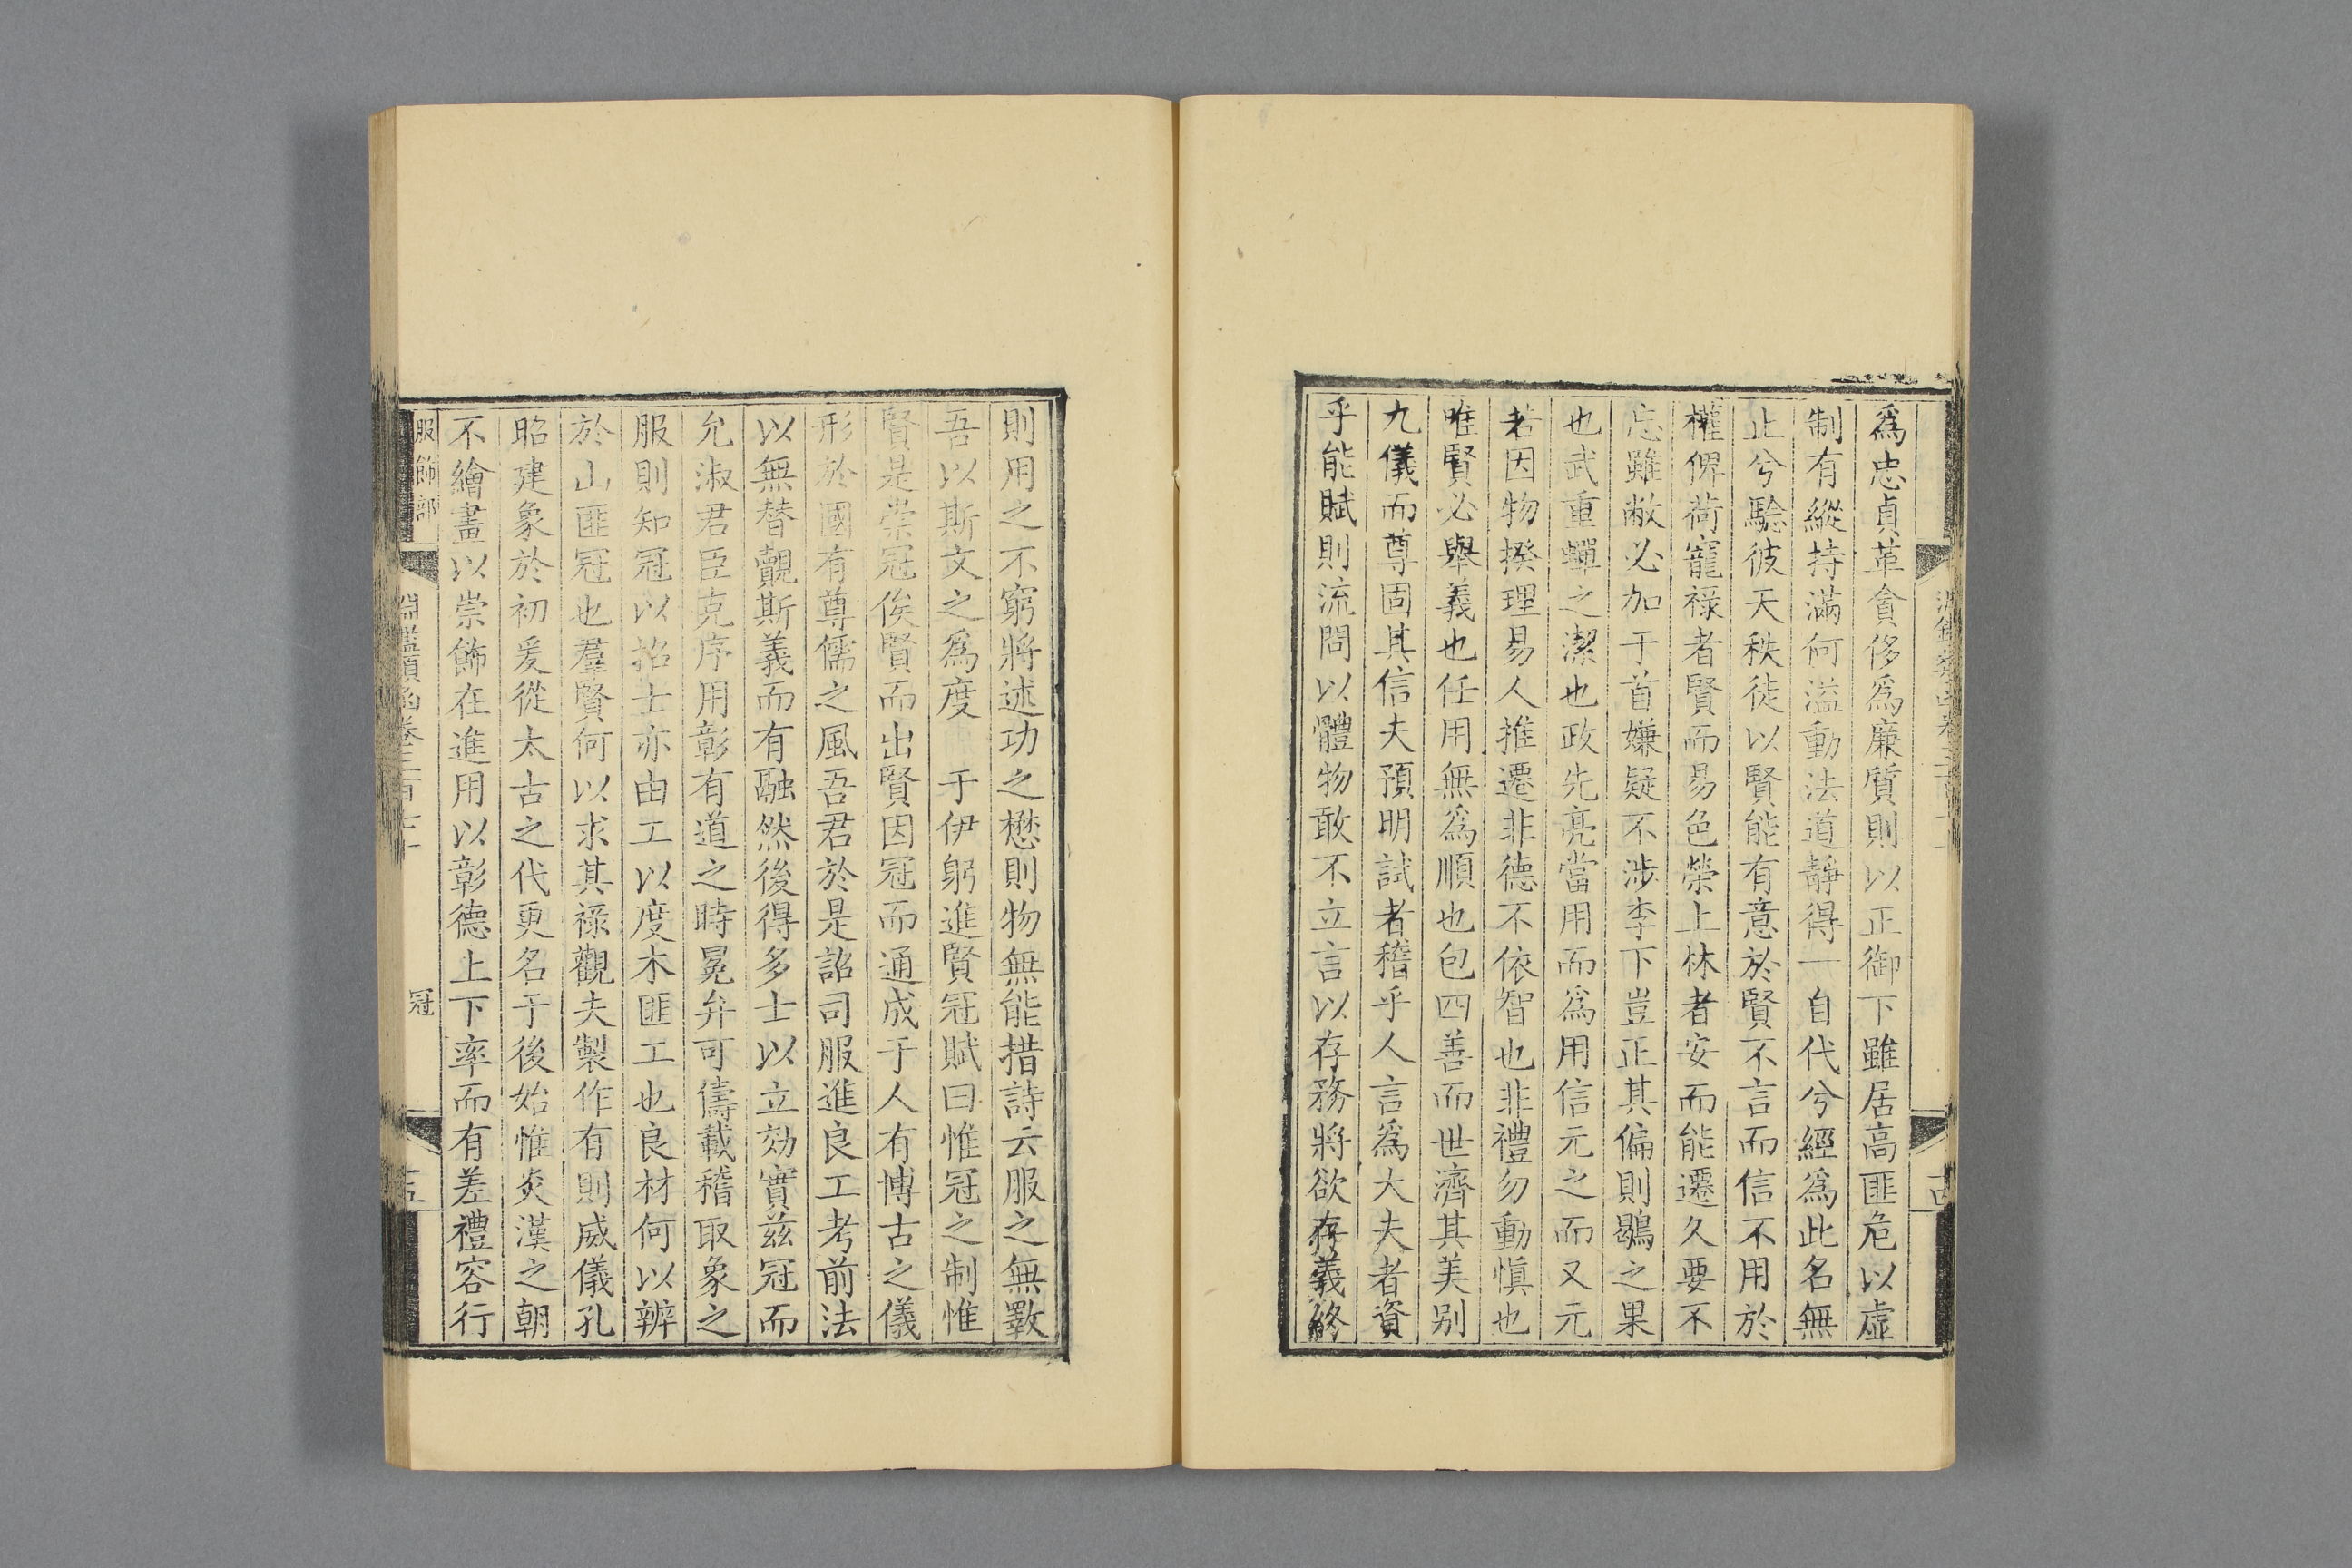 爲忠貞革貪侈爲廉質則以正御下雖居高匪危以虛
制有縱持滿何溢動法道靜得一自代兮經爲此名無
止兮驗彼天秩徒以賢能有意於賢不言而信不用於
權俾荷寵祿者賢而易色榮上林者安而能遷久要不
忘雖敝必加于首嫌疑不涉李下豈正其偏則鶡之果
也武重蟬之潔也政先亮當用而爲用信元之而又元
若因物揆理易人推遷非德不依智也非禮勿動愼也
唯賢必舉義也任用無爲順也包四善而世濟其美别
九儀而尊固其信夫預明試者稽乎人言爲大夫者資
乎能賦則流問以體物敢不立言以存務將欲存義終
則用之不窮將述功之懋則物無能措詩云服之無斁
吾以斯文之爲度 于伊躬進賢冠賦曰惟冠之制惟
賢是崇冠俟賢而出賢因冠而通成于人有博古之儀
形於國有尊儒之風吾君於是詔司服進良工考前法
以無替覿斯義而有融然後得多士以立効實茲冠而
允淑君臣克序用彰有道之時冕弁可儔載稽取象之
服則知冠以招士亦由工以度木匪工也良材何以辨
於山匪冠也羣賢何以求其祿觀夫製作有則威儀孔
昭建象於初爰從太古之代更名于後始惟炎漢之朝
不繪畫以崇飾在進用以彰德上下率而有差禮容行
服飾部
淵鑑類函卷三百七十
冠